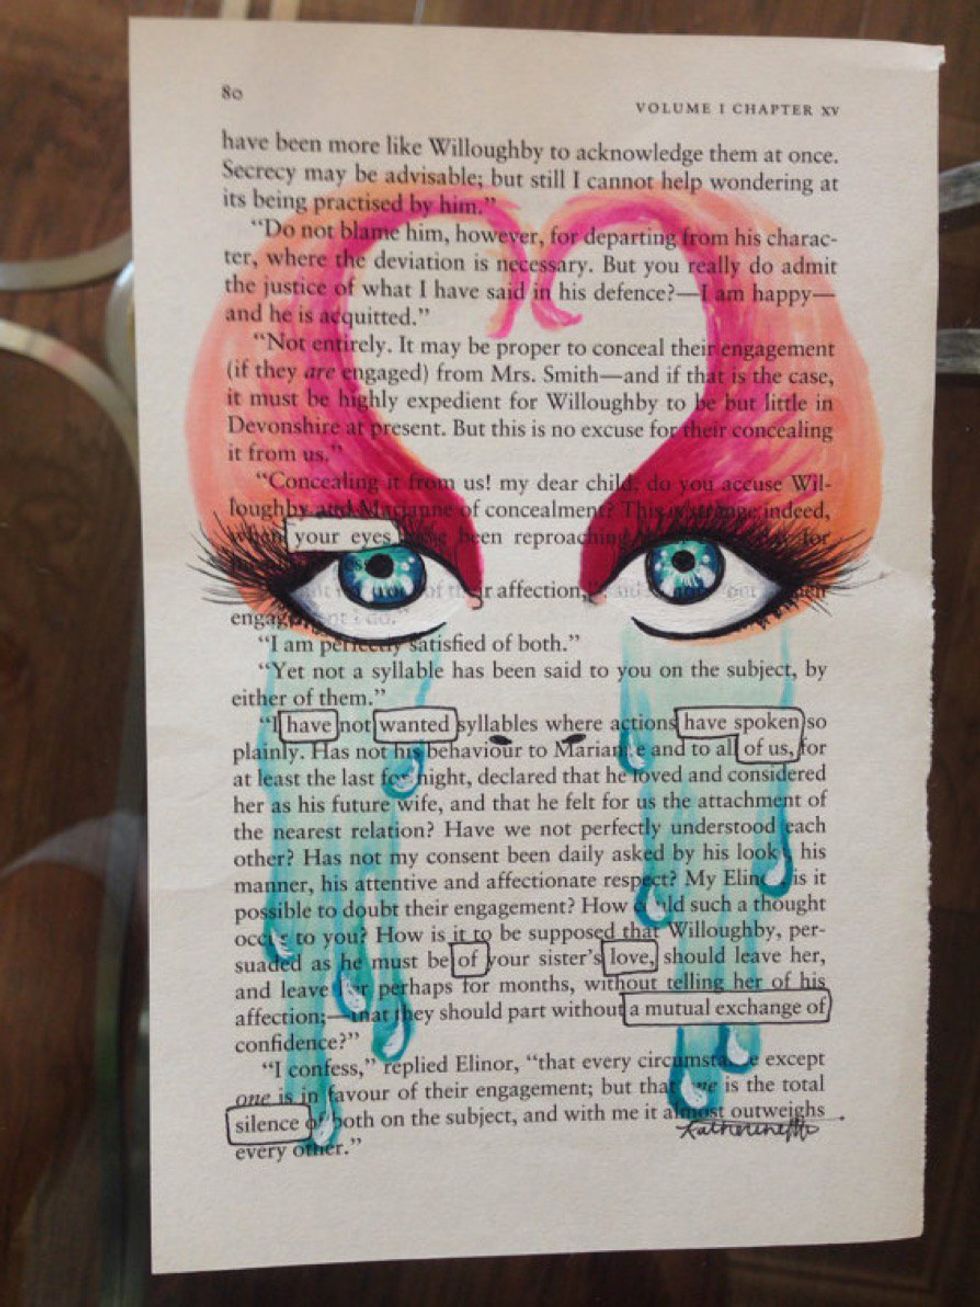 80
VOLUME I CHAPTER XV
have been more like Willoughby to acknowledge them at once.
Secrecy may be advisable; but still I cannot help wondering at
its being practised by him.”
“Do not blame him, however, for departing from his charac-
ter, where the deviation is necessary. But you really do admit
the justice of what I have said in his defence?—I am happy—
and he is acquitted.”
“Not entirely. It may be proper to conceal their engagement
(if they are engaged) from Mrs. Smith—and if that is the case,
it must be highly expedient for Willoughby to be but little in
Devonshire at present. But this is no excuse for their concealing
it from us.”
“Concealing it from us! my dear child, do you accuse Wil-
loughby and Marianne of concealment? This is strange indeed,
when your eyes been reproaching for
of their affection,”
“I am perfectly satisfied of both.”
“Yet not a syllable has been said to you on the subject, by
either of them.”
“I have not wanted syllables where actions have spoken so
plainly. Has not his behaviour to Marianne and to all of us, for
at least the last fortnight, declared that he loved and considered
her as his future wife, and that he felt for us the attachment of
the nearest relation? Have we not perfectly understood each
other? Has not my consent been daily asked by his looks, his
manner, his attentive and affectionate respect? My Elinor, is it
possible to doubt their engagement? How could such a thought
occur to you? How is it to be supposed that Willoughby, per-
suaded as he must be of your sister’s love, should leave her,
and leave her perhaps for months, without telling her of his
affection;—that they should part without a mutual exchange of
confidence?”
“I confess,” replied Elinor, “that every circumstance except
one is in favour of their engagement; but that one is the total
silence of both on the subject, and with me it almost outweighs
every other.”